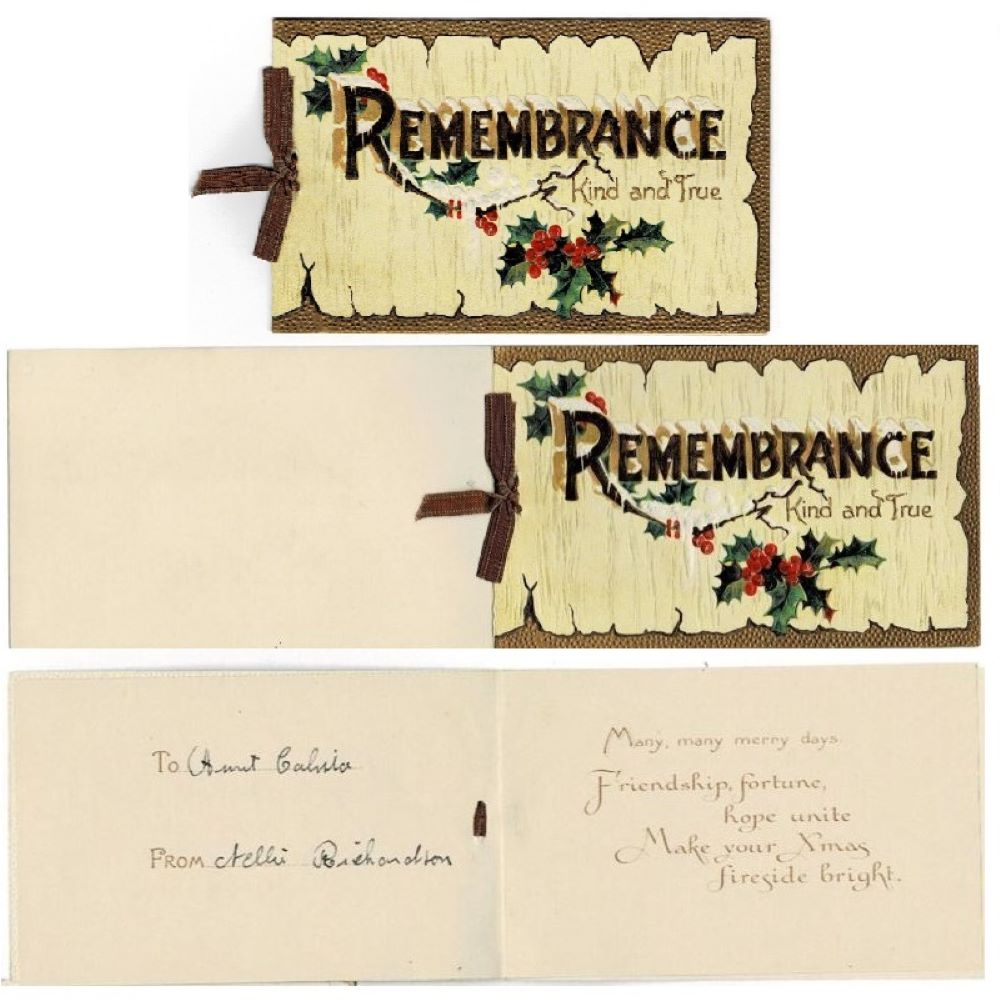 REMEMBRANCE
Kind and True
REMEMBRANCE
Kind and True
To Aunt Calista
FROM Nellie Richardson
Many, many merry days.
Friendship, fortune,
hope unite
Make your Xmas
fireside bright.